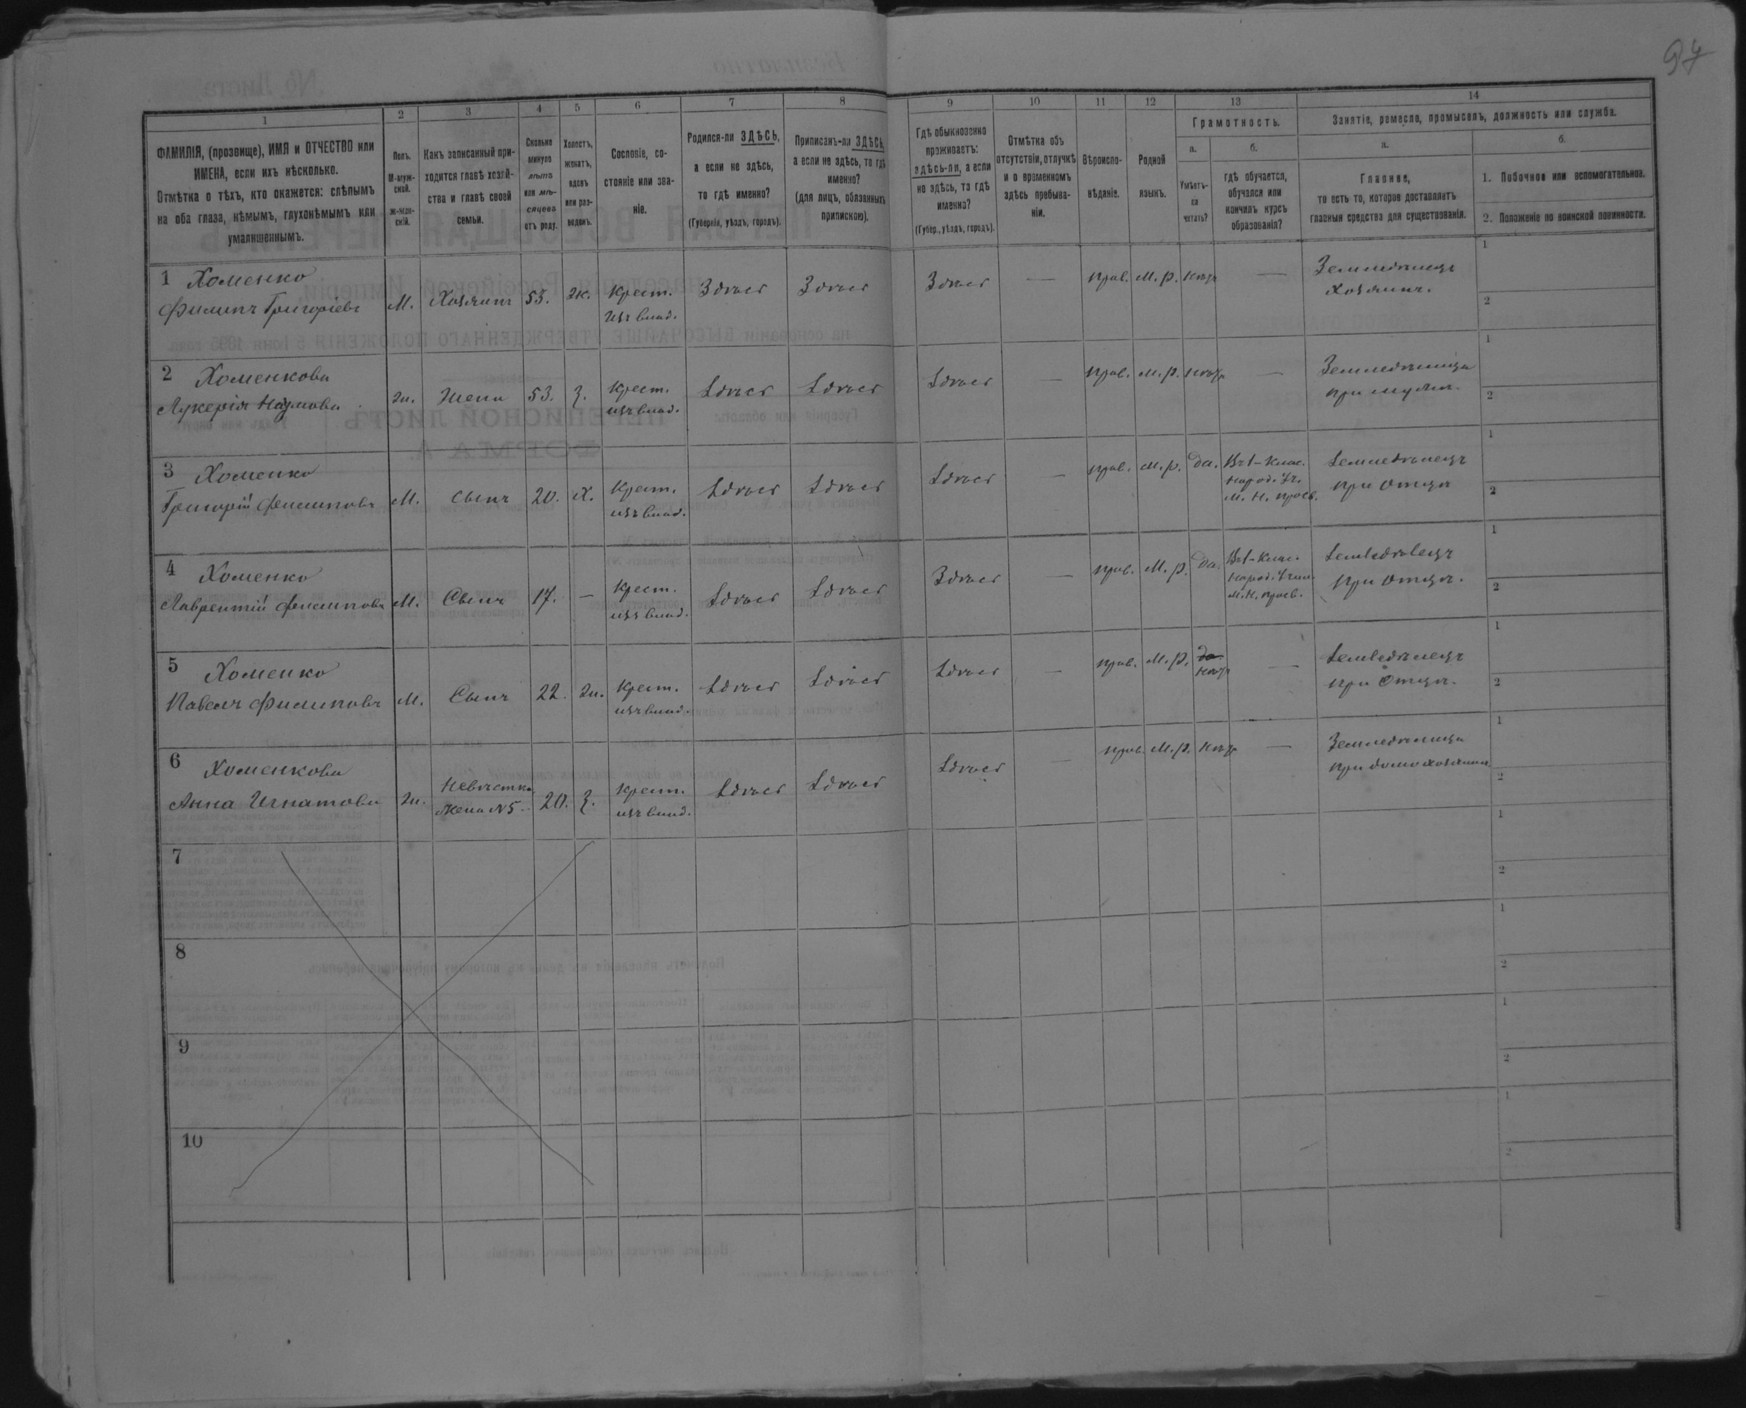 97
1
2
3
4
5
6
7
8
9
10
11
12
13
14
ФАМИЛІЯ, (прозвище), ИМЯ и ОТЧЕСТВО или
ИМЕНА, если ихъ нѣсколько.
Отмѣтка о тѣхъ, кто окажется: слѣпымъ
на оба глаза, нѣмымъ, глухонѣмымъ или
умалишеннымъ.
Полъ.
М-муж-
ской.
ж-жен-
скій.
Какъ записанный при-
ходится главѣ хозяй-
ства и главѣ своей
семьи.
Сколько
минуло
лѣтъ
или мѣ-
сяцевъ
отъ роду.
Холостъ,
женатъ,
вдовъ
или раз-
веденъ.
Сословіе, со-
стояніе или зва-
ніе.
Родился-ли ЗДѢСЬ,
а если не здѣсь,
то гдѣ именно?
(Губернія, уѣздъ, городъ).
Приписанъ-ли ЗДѢСЬ,
а если не здѣсь, то гдѣ
именно?
(для лицъ, обязанныхъ
припискою).
Гдѣ обыкновенно
проживаетъ:
здѣсь-ли, а если
не здѣсь, то гдѣ
именно?
(Губер., уѣздъ, городъ).
Отмѣтка объ
отсутствіи, отлучкѣ
и о временномъ
здѣсь пребыва-
ніи.
Вѣроиспо-
вѣданіе.
Родной
языкъ.
Грамотность.
а.
Умѣетъ-
ли
читать?
б.
гдѣ обучается,
обучался или
кончилъ курсъ
образованія?
Занятіе, ремесло, промыселъ, должность или служба.
а.
Главное,
то есть то, которое доставляетъ
главныя средства для существованія.
б.
1. Побочное или вспомогательное.
2. Положеніе по воинской повинности.
1 Хоменко
Филипъ Григоріевъ
М. Хозяинъ 53. ж. Крест.
изъ влад.
Здѣсь Здѣсь Здѣсь — прав. М. р. нѣтъ — Земледѣлецъ
хозяинъ.
1
2
2 Хоменкова
Лукерія Наумова
ж. Жена 53. З. Крест.
изъ влад.
Здѣсь Здѣсь Здѣсь — прав. М. р. нѣтъ — Земледѣлица
при мужѣ.
1
2
3 Хоменко
Григорій Филиповъ
М. Сынъ 20. Х. Крест.
изъ влад.
Здѣсь Здѣсь Здѣсь — прав. М. р. да. В 1-клас.
народ. Уч.
М. Н. просв.
Земледѣлецъ
при отцѣ
1
2
4 Хоменко
Лаврентій Филиповъ
М. Сынъ 17. — Крест.
изъ влад.
Здѣсь Здѣсь Здѣсь — прав. М. р. да. В 1-клас.
народ. Учил.
М. Н. просв.
Земледѣлецъ
при отцѣ.
1
2
5 Хоменко
Павелъ Филиповъ
М. Сынъ 22. ж. Крест.
изъ влад.
Здѣсь Здѣсь Здѣсь — прав. М. р. да
нѣтъ — Земледѣлецъ
при отцѣ.
1
2
6 Хоменкова
Анна Игнатова
ж. Невѣстка
жена №5. 20. З. Крест.
изъ влад.
Здѣсь Здѣсь Здѣсь — прав. М. р. нѣтъ — Земледѣлица
1
2
7
1
2
8
1
2
9
1
2
10
1
2